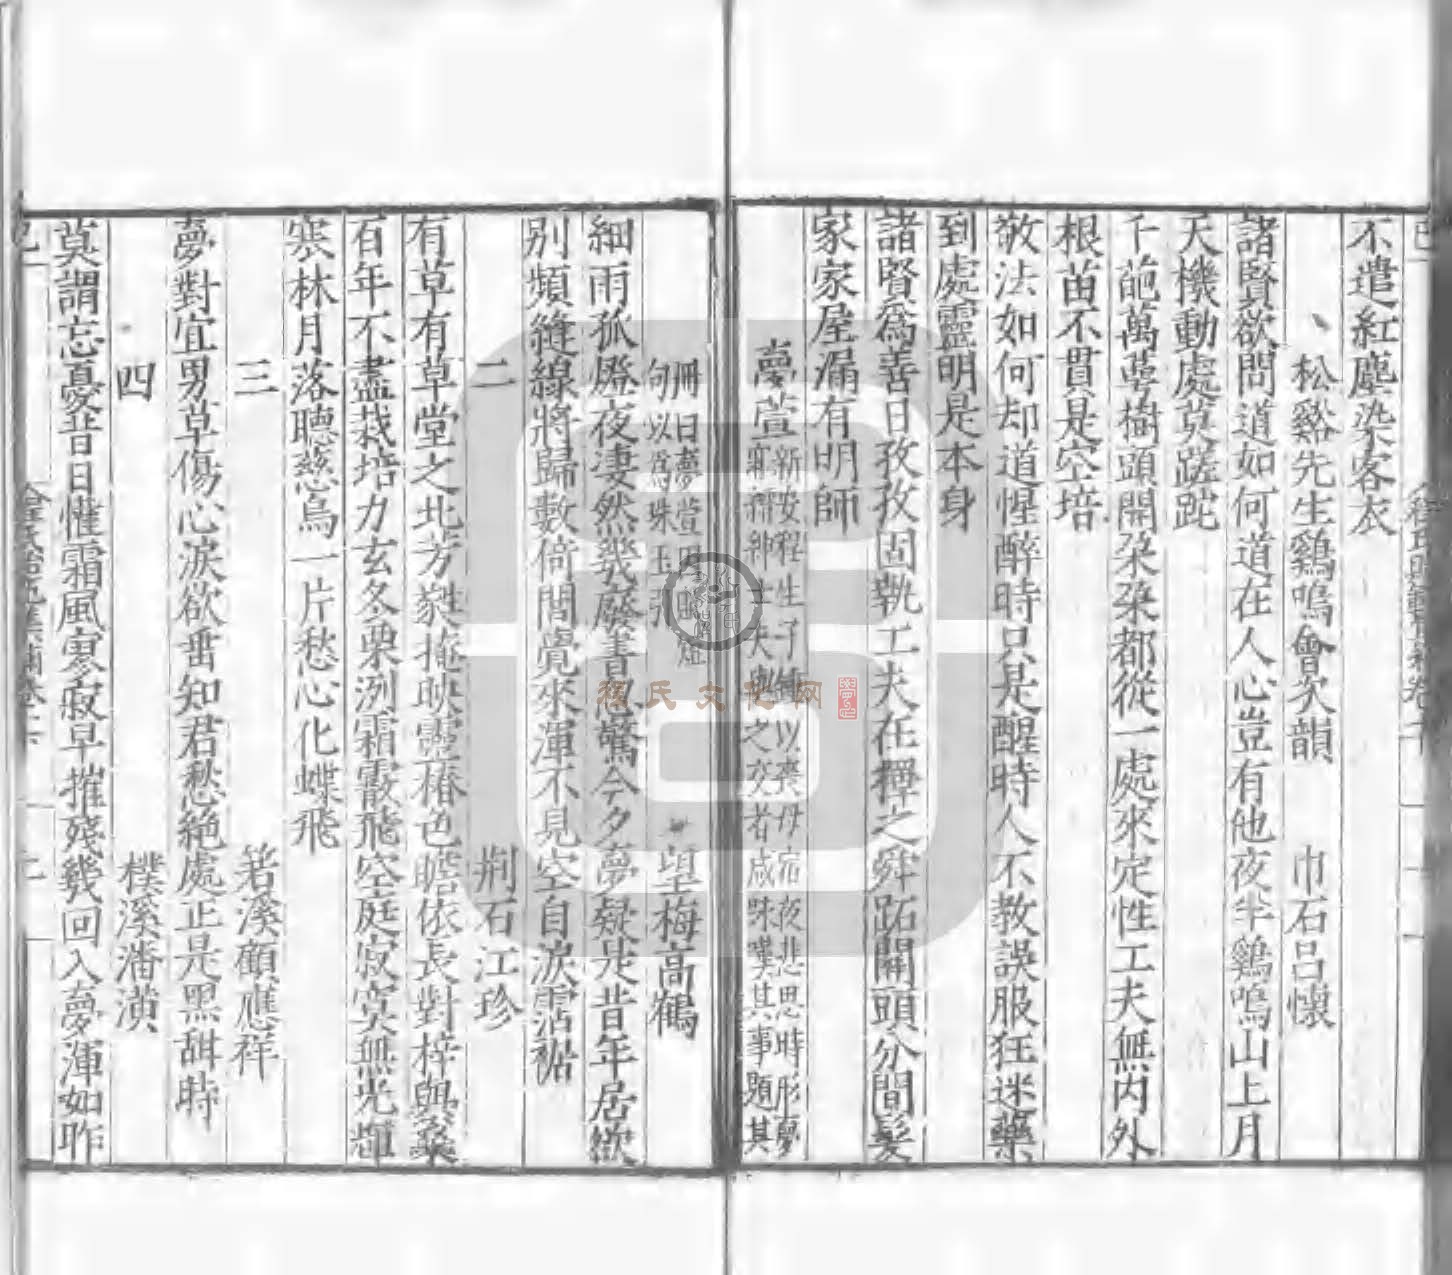 不遣紅塵染客衣
松谿先生鷄鳴會次韻 巾石呂懷
諸賢欲問道如何道在人心豈有他夜半鷄鳴山上月
天機動處莫蹉跎
千葩萬萼樹頭開朶朶都從一處來定性工夫無內外
根苗不貫是空培
敬法如何却道惺醉時只是醒時人不教誤服狂迷藥
到處靈明是本身
諸賢爲善日孜孜固執工夫在擇之舜跖關頭分間髮
家家屋漏有明師
夢萱新安程生子 以喪母 夜悲思時形夢
寐 紳士夫 之交者咸 其事題其
冊曰夢萱
句以爲珠玉
望梅高鶴
細雨孤燈夜凄然幾廢書忽驚今夕夢疑是昔年居欲
別頻縫線將歸數倚閭覺來渾不見空自淚霑裾
二 荆石江珍
有草有草堂之北芳 掩映靈椿色瞻依長對梓與桑
百年不盡栽培力玄冬栗洌霜霰飛空庭寂寞無光輝
寒林月落聽慈烏一片愁心化蝶飛
三 若溪顧應祥
夢對宜男草傷心淚欲垂知君愁絕處正是黑甜時
四 樸溪潘潢
莫謂忘憂昔日懽霜風寥寂早摧殘幾回入夢渾如昨
徐氏文化网